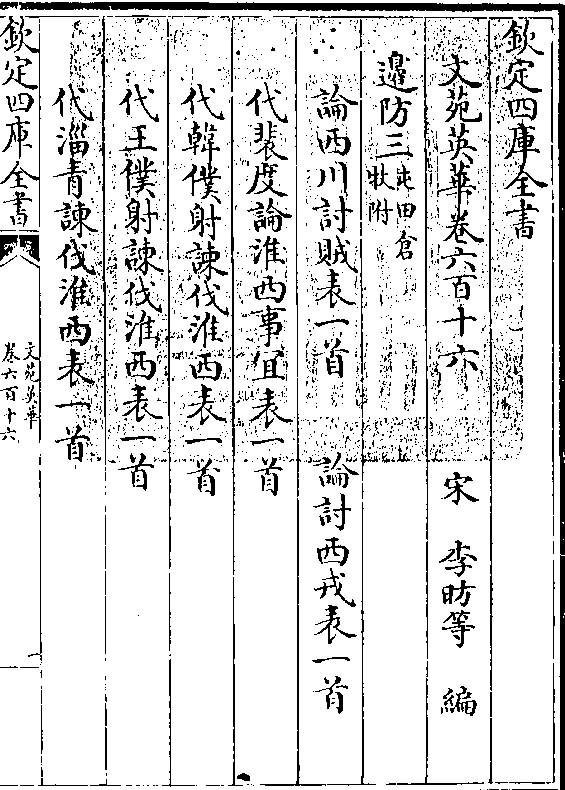 欽定四庫全書
文苑英華卷六百十六 宋 李昉等 編
邊防三 屯田倉牧附
論西川討賊表一首 論討西戎表一首
代裴度論淮西事宜表一首
代韓僕射諫伐淮西表一首
代王僕射諫伐淮西表一首
代淄青諫伐淮西表一首
欽定四庫全書
文苑英華
卷六百十六
一